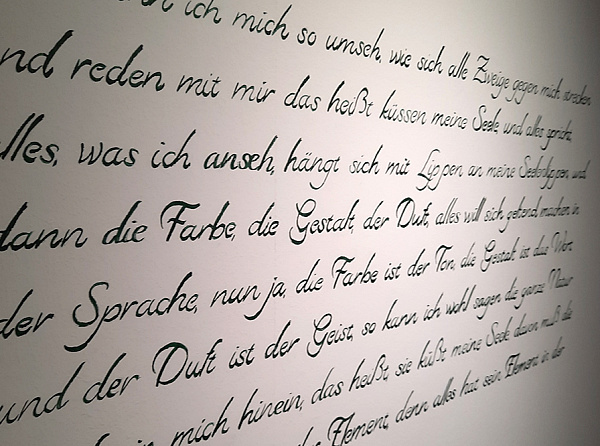 ich mich so umseh, wie sich alle Zweige gegen mich strecken
und reden mit mir das heißt küssen meine Seele, und alles spricht,
alles, was ich anseh, hängt sich mit Lippen an meine Seelenlippen, und
dann die Farbe, die Gestalt, der Duft, alles will sich geltend machen in
der Sprache, nun ja, die Farbe ist der Ton, die Gestalt ist das Wort
und der Duft ist der Geist, so kann ich wohl sagen die ganze Natur
in mich hinein, das heißt, sie küßt meine Seele davon muß die
Element, denn alles hat sein Element in der